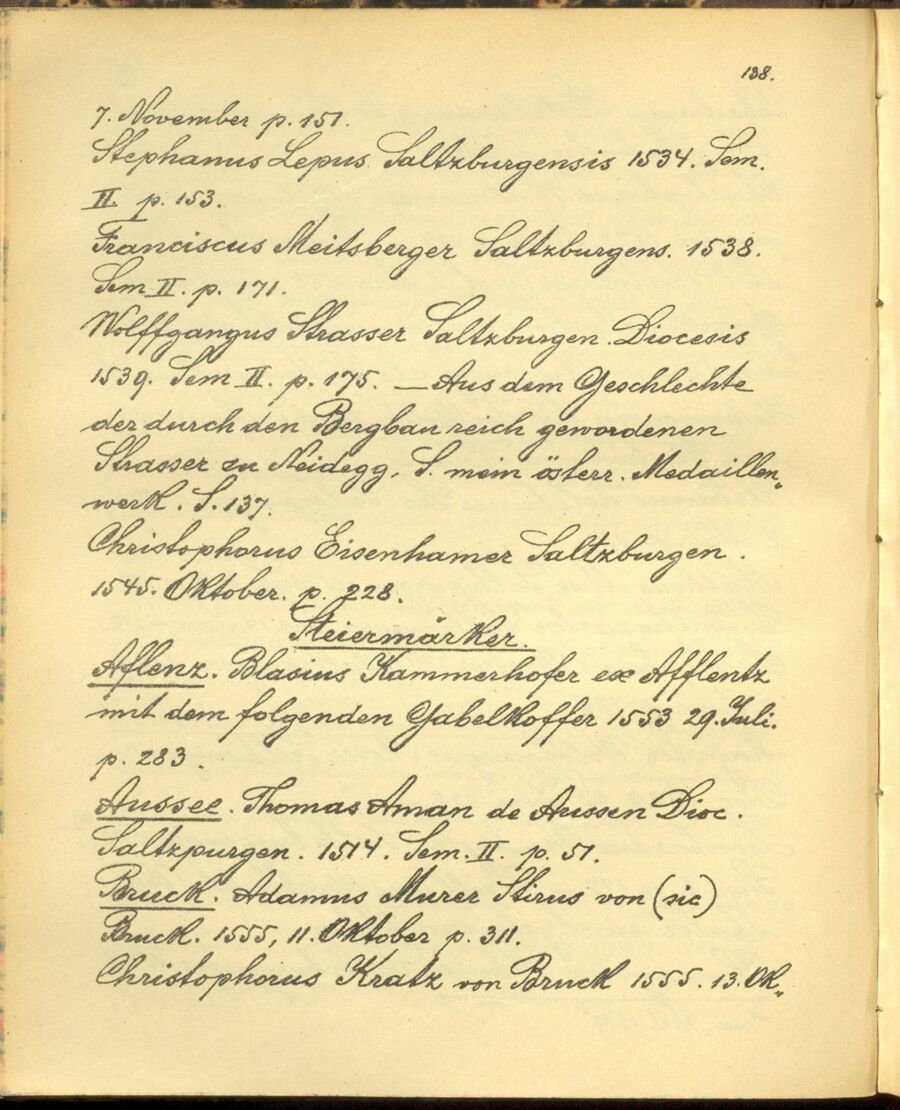 138.
7. November p. 151.
Stephanus Lepus Saltzburgensis 1534. Sem.
II. p. 153.
Franciscus Meitsberger Saltzburgens. 1538.
Sem II. p. 171.
Wolffgangus Strasser Saltzburgen. Diocesis
1539. Sem II. p. 175. — Aus dem Geschlechte
der durch den Bergbau reich gewordenen
Strasser zu Neidegg. S. mein österr. Medaillen„
werk. S. 137.
Christophorus Eisenhamer Saltzburgen.
1545. Oktober. p. 228.
Steiermärker.
Aflenz. Blasius Kammerhofer ex Afflentz
mit dem folgenden Gabelkoffer 1553 29. Juli.
p. 283.
Aussee. Thomas Aman de Aussen Dioc.
Saltzpurgen. 1514. Sem. II. p. 51.
Bruck. Adamus Murer Stirus von (sic)
Bruck. 1555, 11. Oktober p. 311.
Christophorus Kratz von Bruck 1555. 13. Ok„